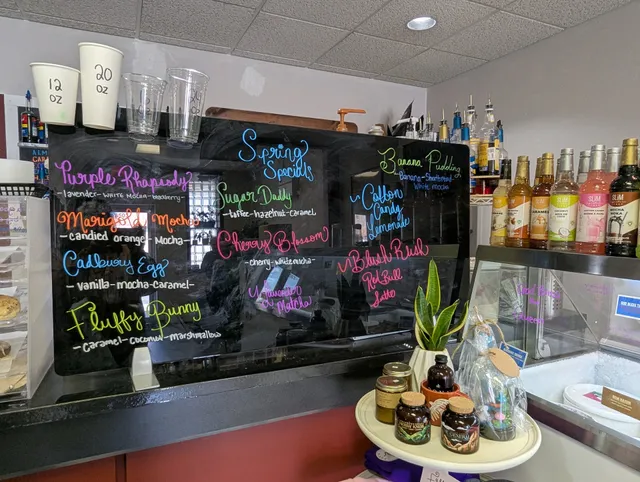 12
oz
20
oz
Spring
Specials
Purple Rhapsody
-lavender-white mocha-blackberry-
Marigold Mocha
-candied orange-mocha-
Cadbury Egg
-vanilla-mocha-caramel-
Fluffy Bunny
-caramel-coconut-marshmallow
Sugar Daddy
-toffee-hazelnut-caramel
Cherry Blossom
-cherry-white mocha-
Matcha
Banana Pudding
Banana-Shortbread
White mocha
Cotton
Candy
Lemonade
Blush Rush
Red Bull